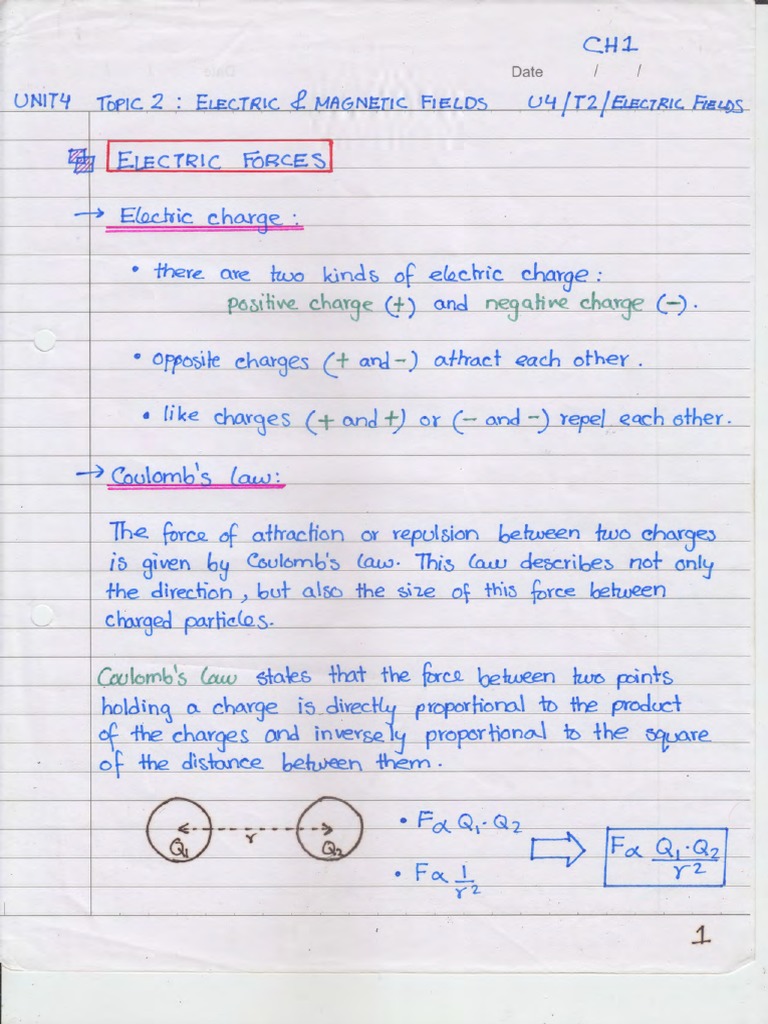 CH1
Date / /
UNIT4 TOPIC 2 : ELECTRIC & MAGNETIC FIELDS U4/T2/ELECTRIC FIELDS
ELECTRIC FORCES
→ Electric charge :
• there are two kinds of electric charge :
positive charge (+) and negative charge (-).
• opposite charges (+ and -) attract each other.
• like charges (+ and +) or (- and -) repel each other.
→ Coulomb's law:
The force of attraction or repulsion between two charges
is given by Coulomb's law. This law describes not only
the direction, but also the size of this force between
charged particles.
Coulomb's law states that the force between two points
holding a charge is directly proportional to the product
of the charges and inversely proportional to the square
of the distance between them.
Q₁ r Q₂
• F ∝ Q₁·Q₂
• F ∝ 1/r²
F ∝ Q₁·Q₂/r²
1